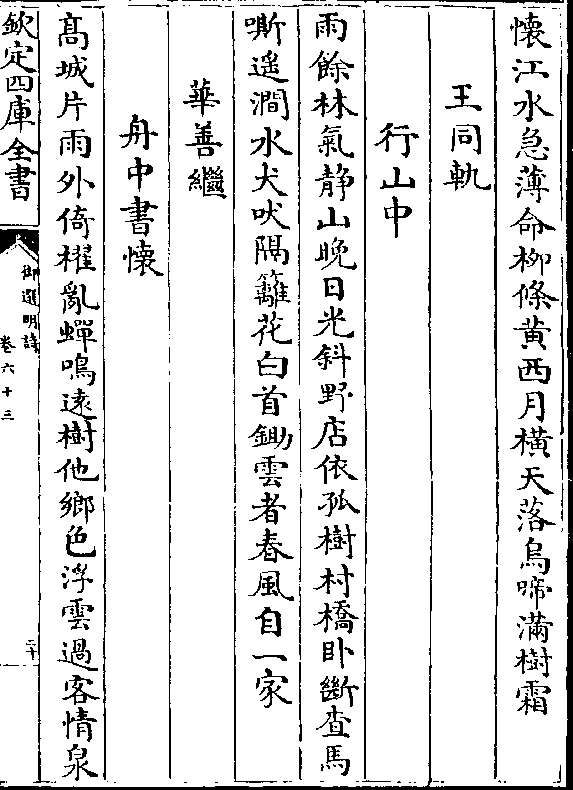 懷江水急薄命柳條黄西月橫天落烏啼滿樹霜
王同軌
行山中
雨餘林氣静山晚日光斜野店依孤樹村橋卧斷查馬
嘶遥澗水犬吠隔籬花白首鋤雲者春風自一家
華善繼
舟中書懷
髙城片雨外倚櫂亂蟬鳴逺樹他鄉色浮雲過客情泉
欽定四庫全書
御選明詩
卷六十三
二十